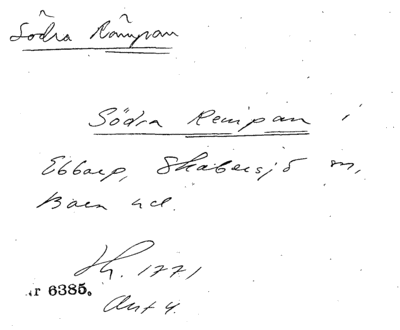 Södra Rämpan
Södra Rempan i
Ebbarp, Skabersjö sn,
Bara hd.
Hh. 1771
nr 6385.
Akt 4.